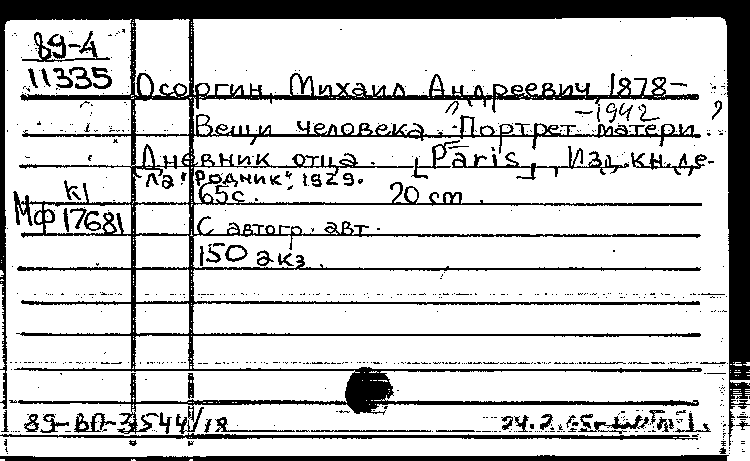 89-4
11335
Осоргин, Михаил Андреевич, 1878-
-1942
Вещи человека. Портрет матери.
Дневник отца. [Paris], Изд. кн. де-
ла "Родник", 1929.
65 с. 20 cm.
К1
МФ 17681
С автогр. авт.
150 экз.
89-ВП-3544/18
24.2.65г.